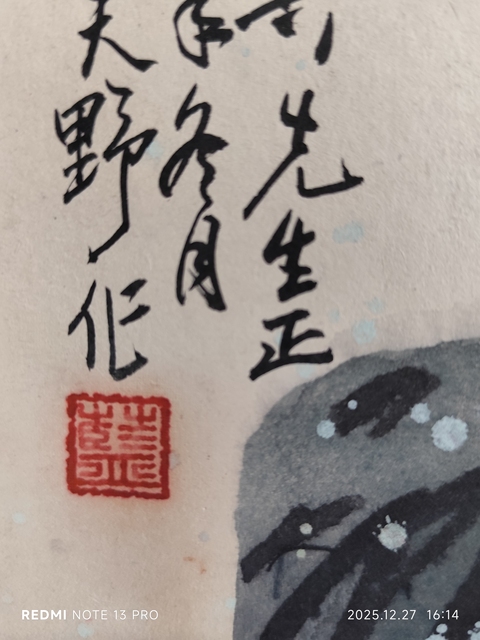 先生正
年冬月
天野作
REDMI NOTE 13 PRO
2025.12.27 16:14